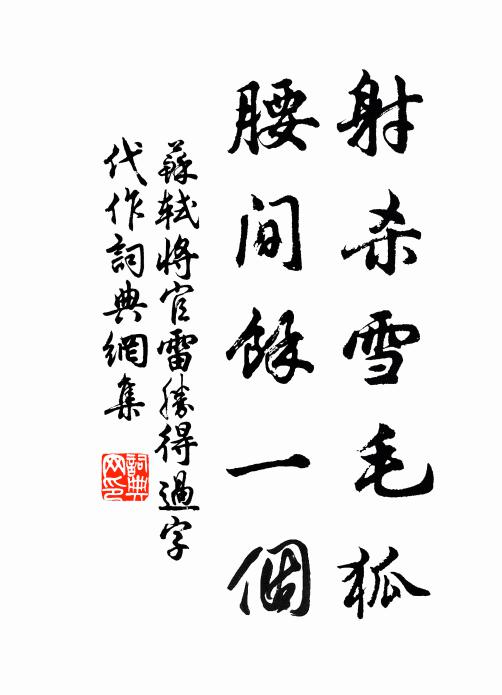 射杀雪毛狐
腰间餘一個
蘇軾将官雷勝得過字
代作詞典網集
詞典
网印